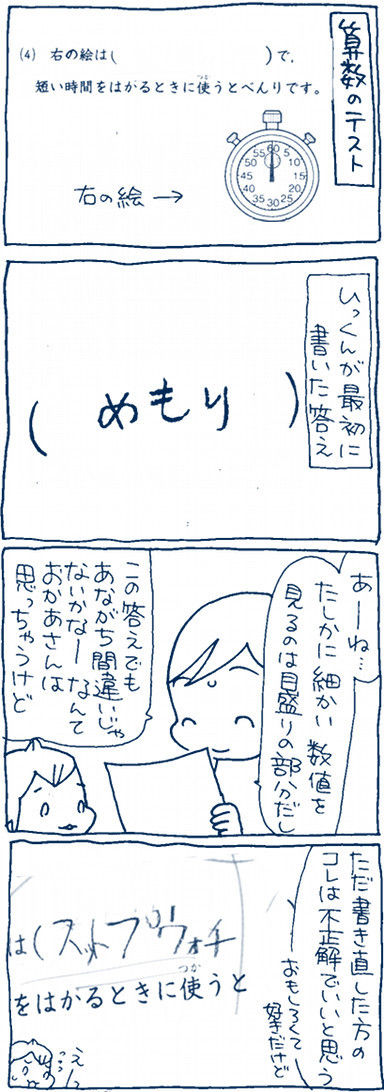 算数のテスト
(4) 右の絵は(　　　　　)で、
つか
短い時間をはかるときに使うとべんりです。
右の絵→
60
55 5
50 10
45 15
40 20
35 30 25
ひっくんが最初に
書いた答え
( めもり )
あーね…
たしかに細かい数値を
見るのは目盛りの部分だし
この答えでも
あながち間違いじゃ
ないかなーなんて
おかあさんは
思っちゃうけど
ただ書き直した方の
コレは不正解でいいと思う
おもしろくて
好きだけど
は(スットプウォチ
つか
をはかるときに使うと
えーっ